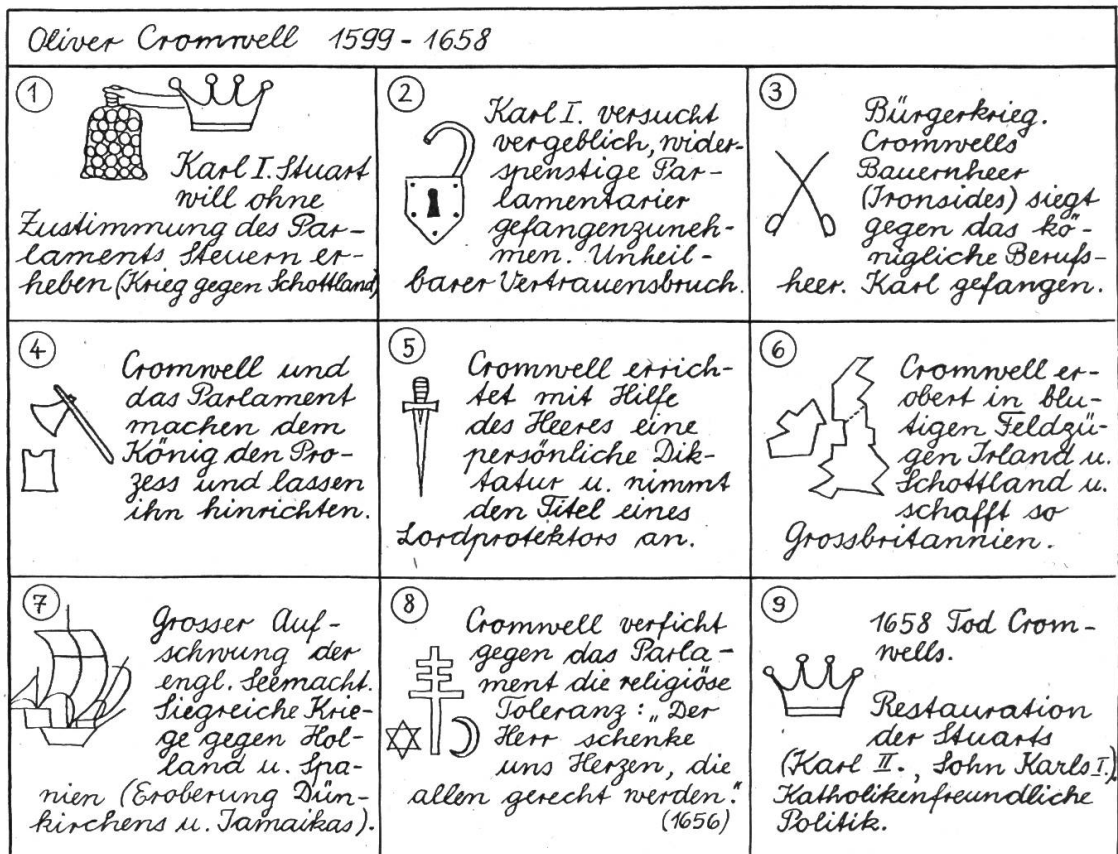 Oliver Cromwell 1599-1658
1
Karl I. Stuart
will ohne
Zustimmung des Par-
laments Steuern er-
heben (Krieg gegen Schottland)
2
Karl I. versucht
vergeblich, wider-
spenstige Par-
lamentarier
gefangenzuneh-
men. Unheil-
barer Vertrauensbruch.
3
Bürgerkrieg.
Cromwells
Bauernheer
(Ironsides) siegt
gegen das kö-
nigliche Berufs-
heer. Karl gefangen.
4
Cromwell und
das Parlament
machen dem
König den Pro-
zess und lassen
ihn hinrichten.
5
Cromwell errich-
tet mit Hilfe
des Heeres eine
persönliche Dik-
tatur u. nimmt
den Titel eines
Lordprotektors an.
6
Cromwell er-
obert in blu-
tigen Feldzü-
gen Irland u.
Schottland u.
schafft so
Grossbritannien.
7
Grosser Auf-
schwung der
engl. Seemacht.
Siegreiche Krie-
ge gegen Hol-
land u. Spa-
nien (Eroberung Dün-
kirchens u. Jamaikas).
8
Cromwell verficht
gegen das Parla-
ment die religiöse
Toleranz: „Der
Herr schenke
uns Herzen, die
allen gerecht werden."
(1656)
9
1658 Tod Crom-
wells.
Restauration
der Stuarts
(Karl II., Sohn Karls I.)
Katholikenfreundliche
Politik.